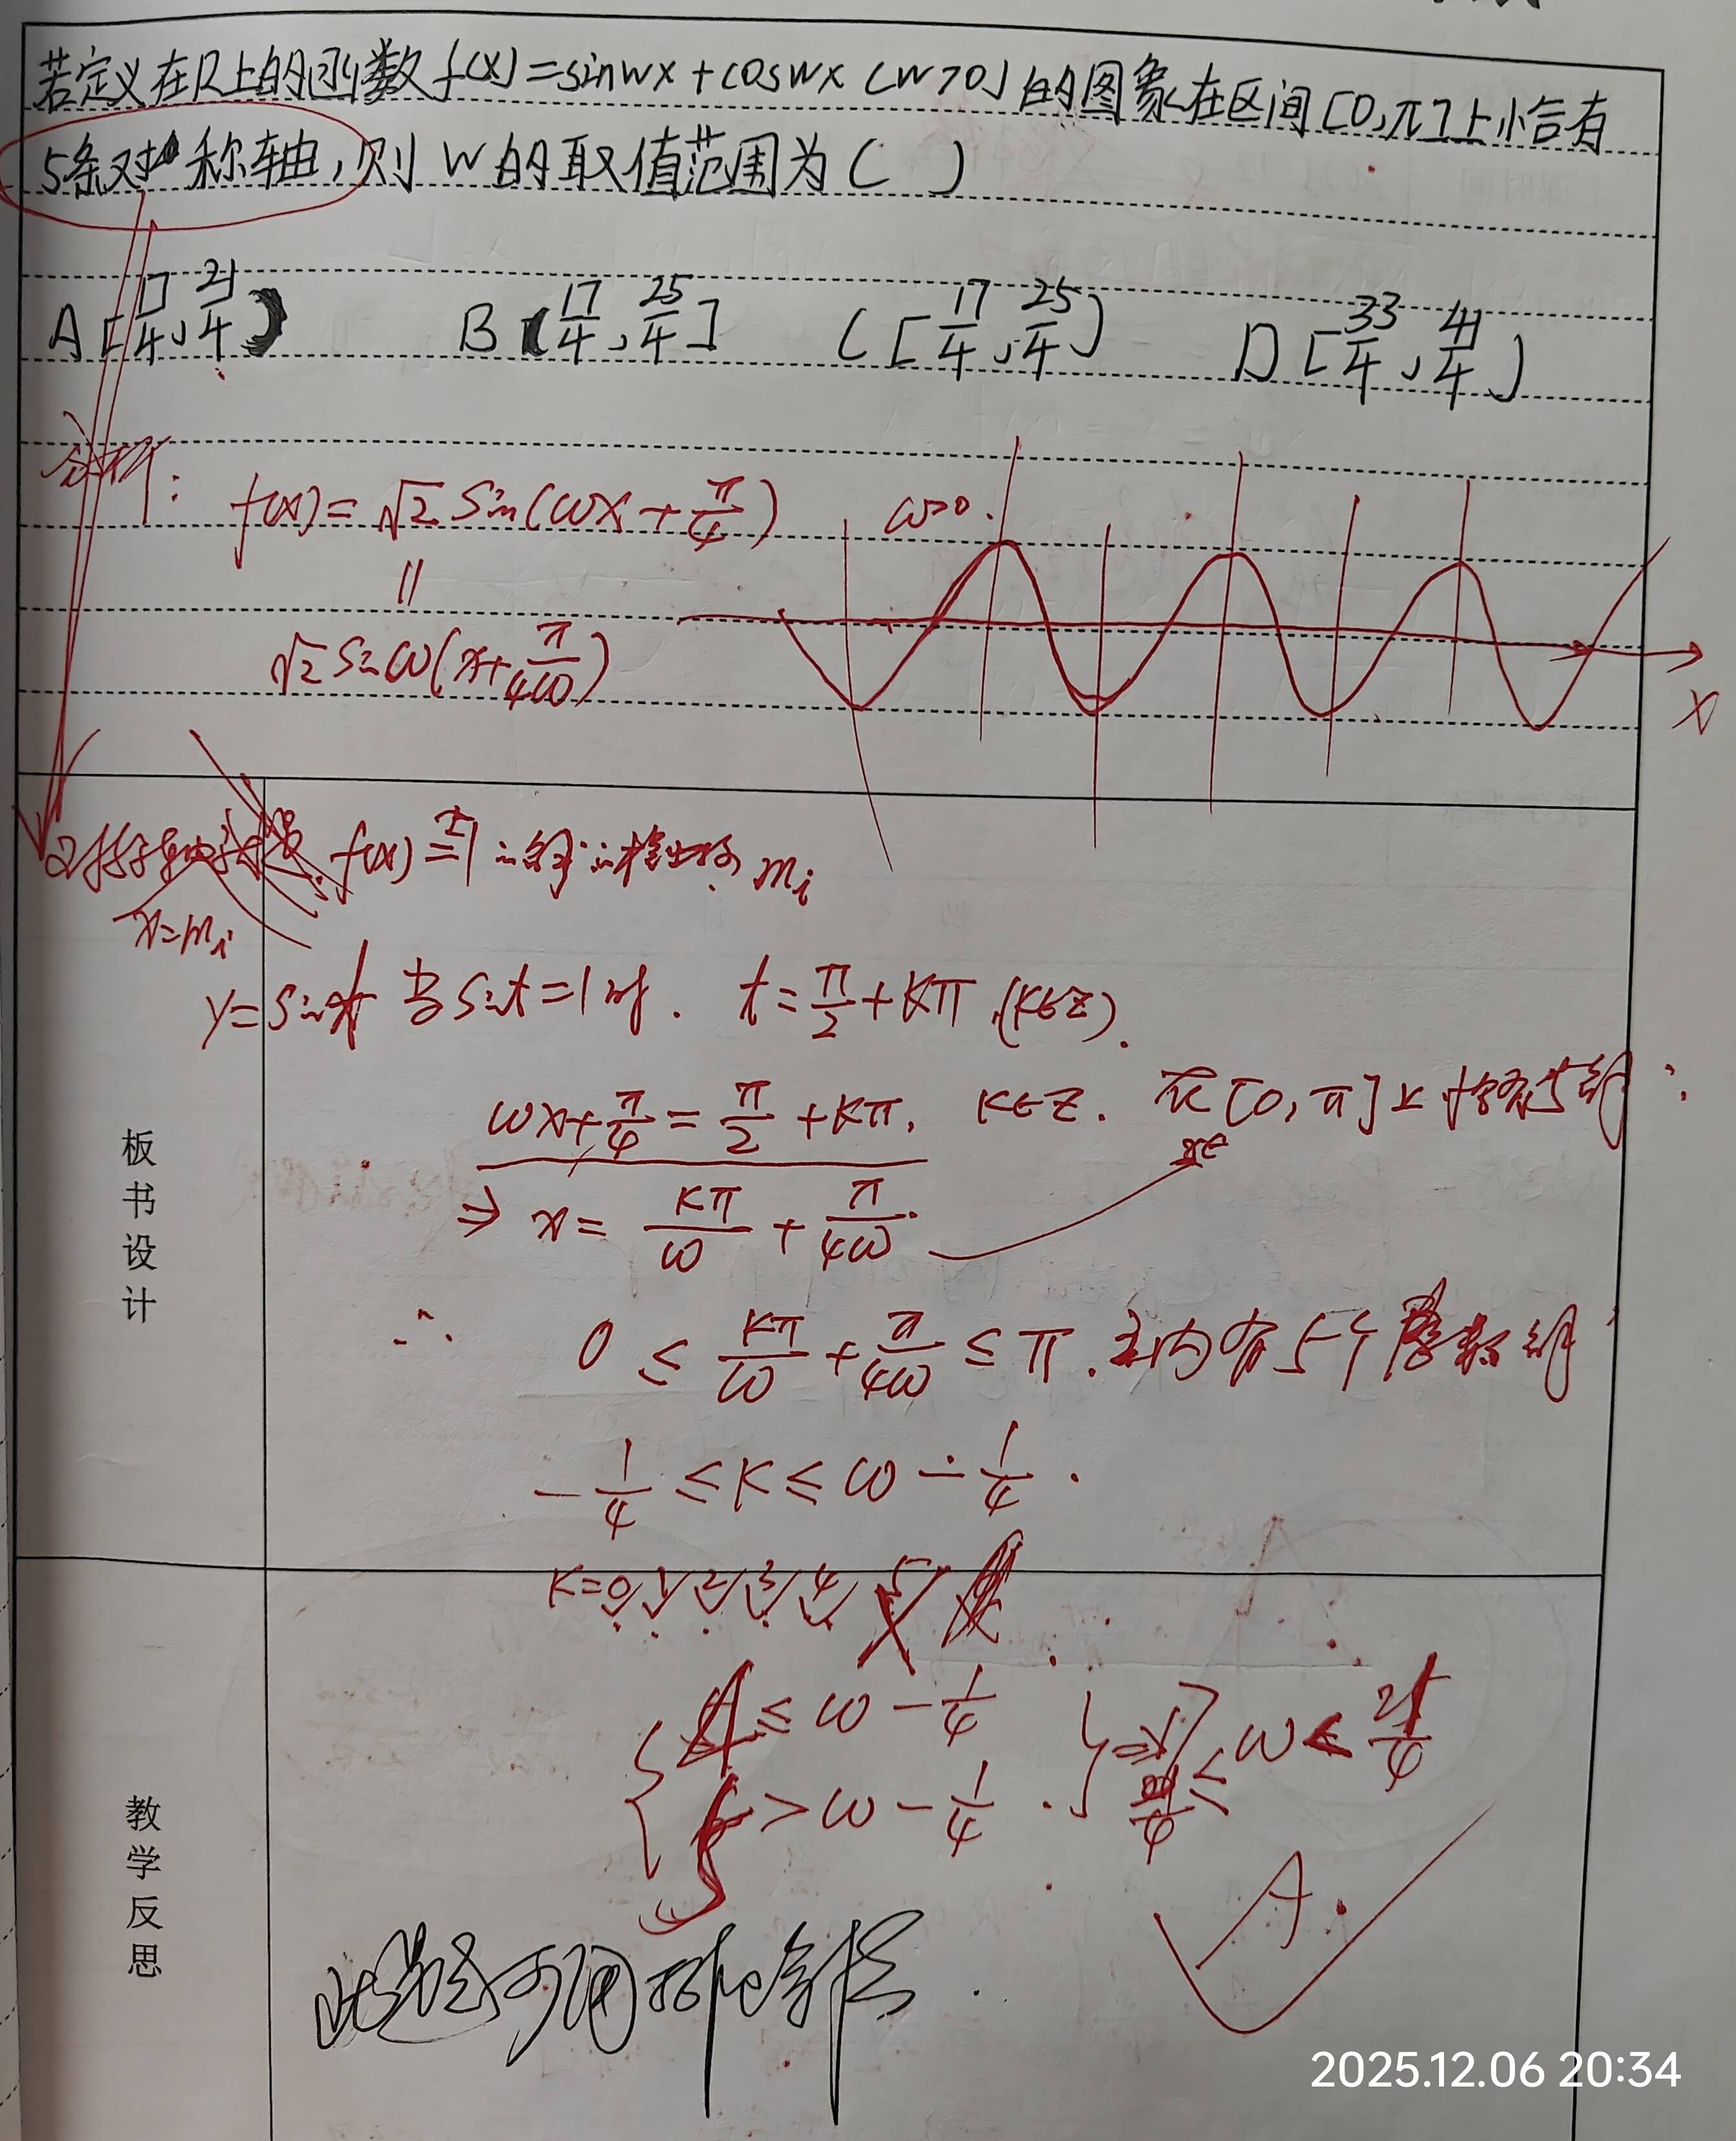 若定义在R上的函数f(x)=sinwx+coswx (w>0)的图象在区间[0,π]上恰有
5条对称轴,则w的取值范围为( )
A[17/4, 21/4) B(17/4, 25/4] C[17/4, 25/4) D[33/4, 41/4)
分析: f(x)=√2 Sin(ωx+π/4) ω>0.
||
√2 Sin ω(x+π/4ω)
X
对称轴 f(x)=±1 m_i
x=m_i
y=Sin 当Sint=1时. t=π/2+Kπ,(K∈Z).
ωx+π/4=π/2+Kπ, K∈Z. 在[0,π]上恰有5解
x∈
⇒ x=Kπ/ω+π/4ω.
∴ 0≤Kπ/ω+π/4ω≤π. 内有5个
-1/4≤K≤ω-1/4.
K=0,1,2,3,4, 5
4≤ω-1/4
5>ω-1/4. ⇒ 17/4≤ω<21/4
A.
此题可用排除法.
板书设计
教学反思
2025.12.06 20:34